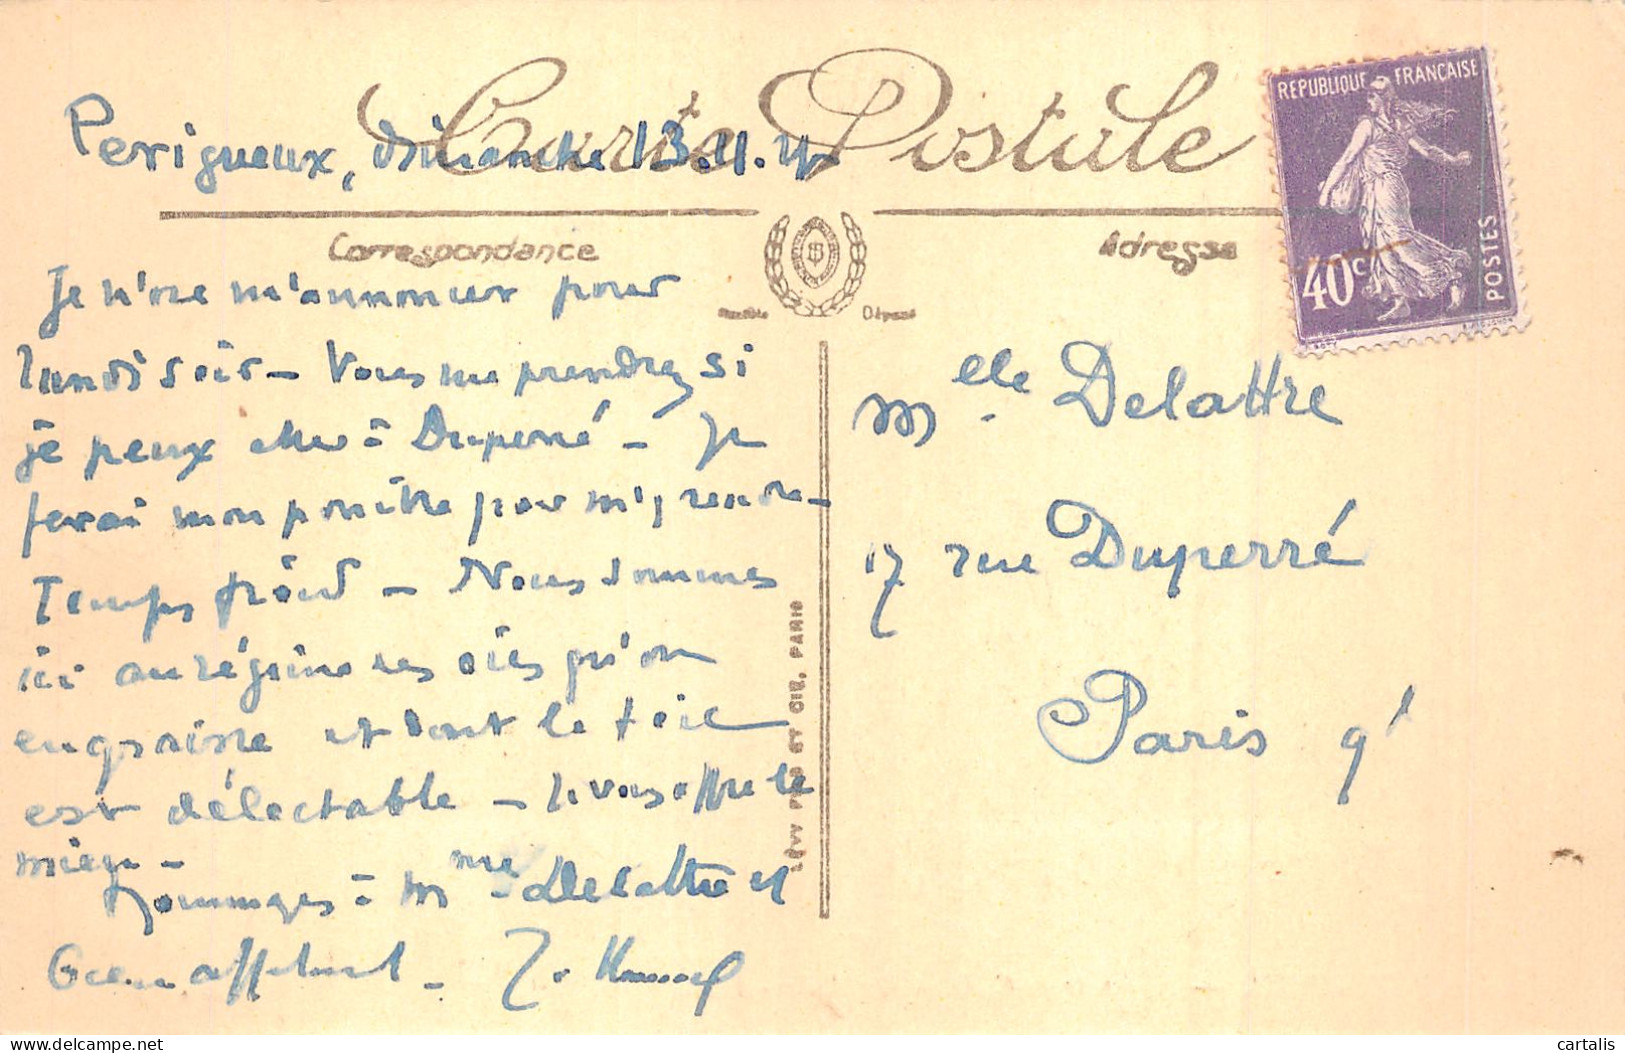 Carte Postale
Perigueux, dimanche 13.11.27
RÉPUBLIQUE FRANÇAISE
40c
POSTES
Correspondance
Adresse
Modèle Déposé
Je n'ose m'annoncer pour
lundi soir - Vous me prendrez si
je peux être à Duperré - Je
ferai mon possible pour m'y rendre -
Temps froid - Nous sommes
ici au régime des oies qu'on
engraisse et dont le foie
est délectable - Je vous offre le
mien -
Hommages à Mme Delattre et
bien affectueux -
Melle Delattre
17 rue Duperré
Paris 9e
LÉVY FILS ET CIE, PARIS
cartalis